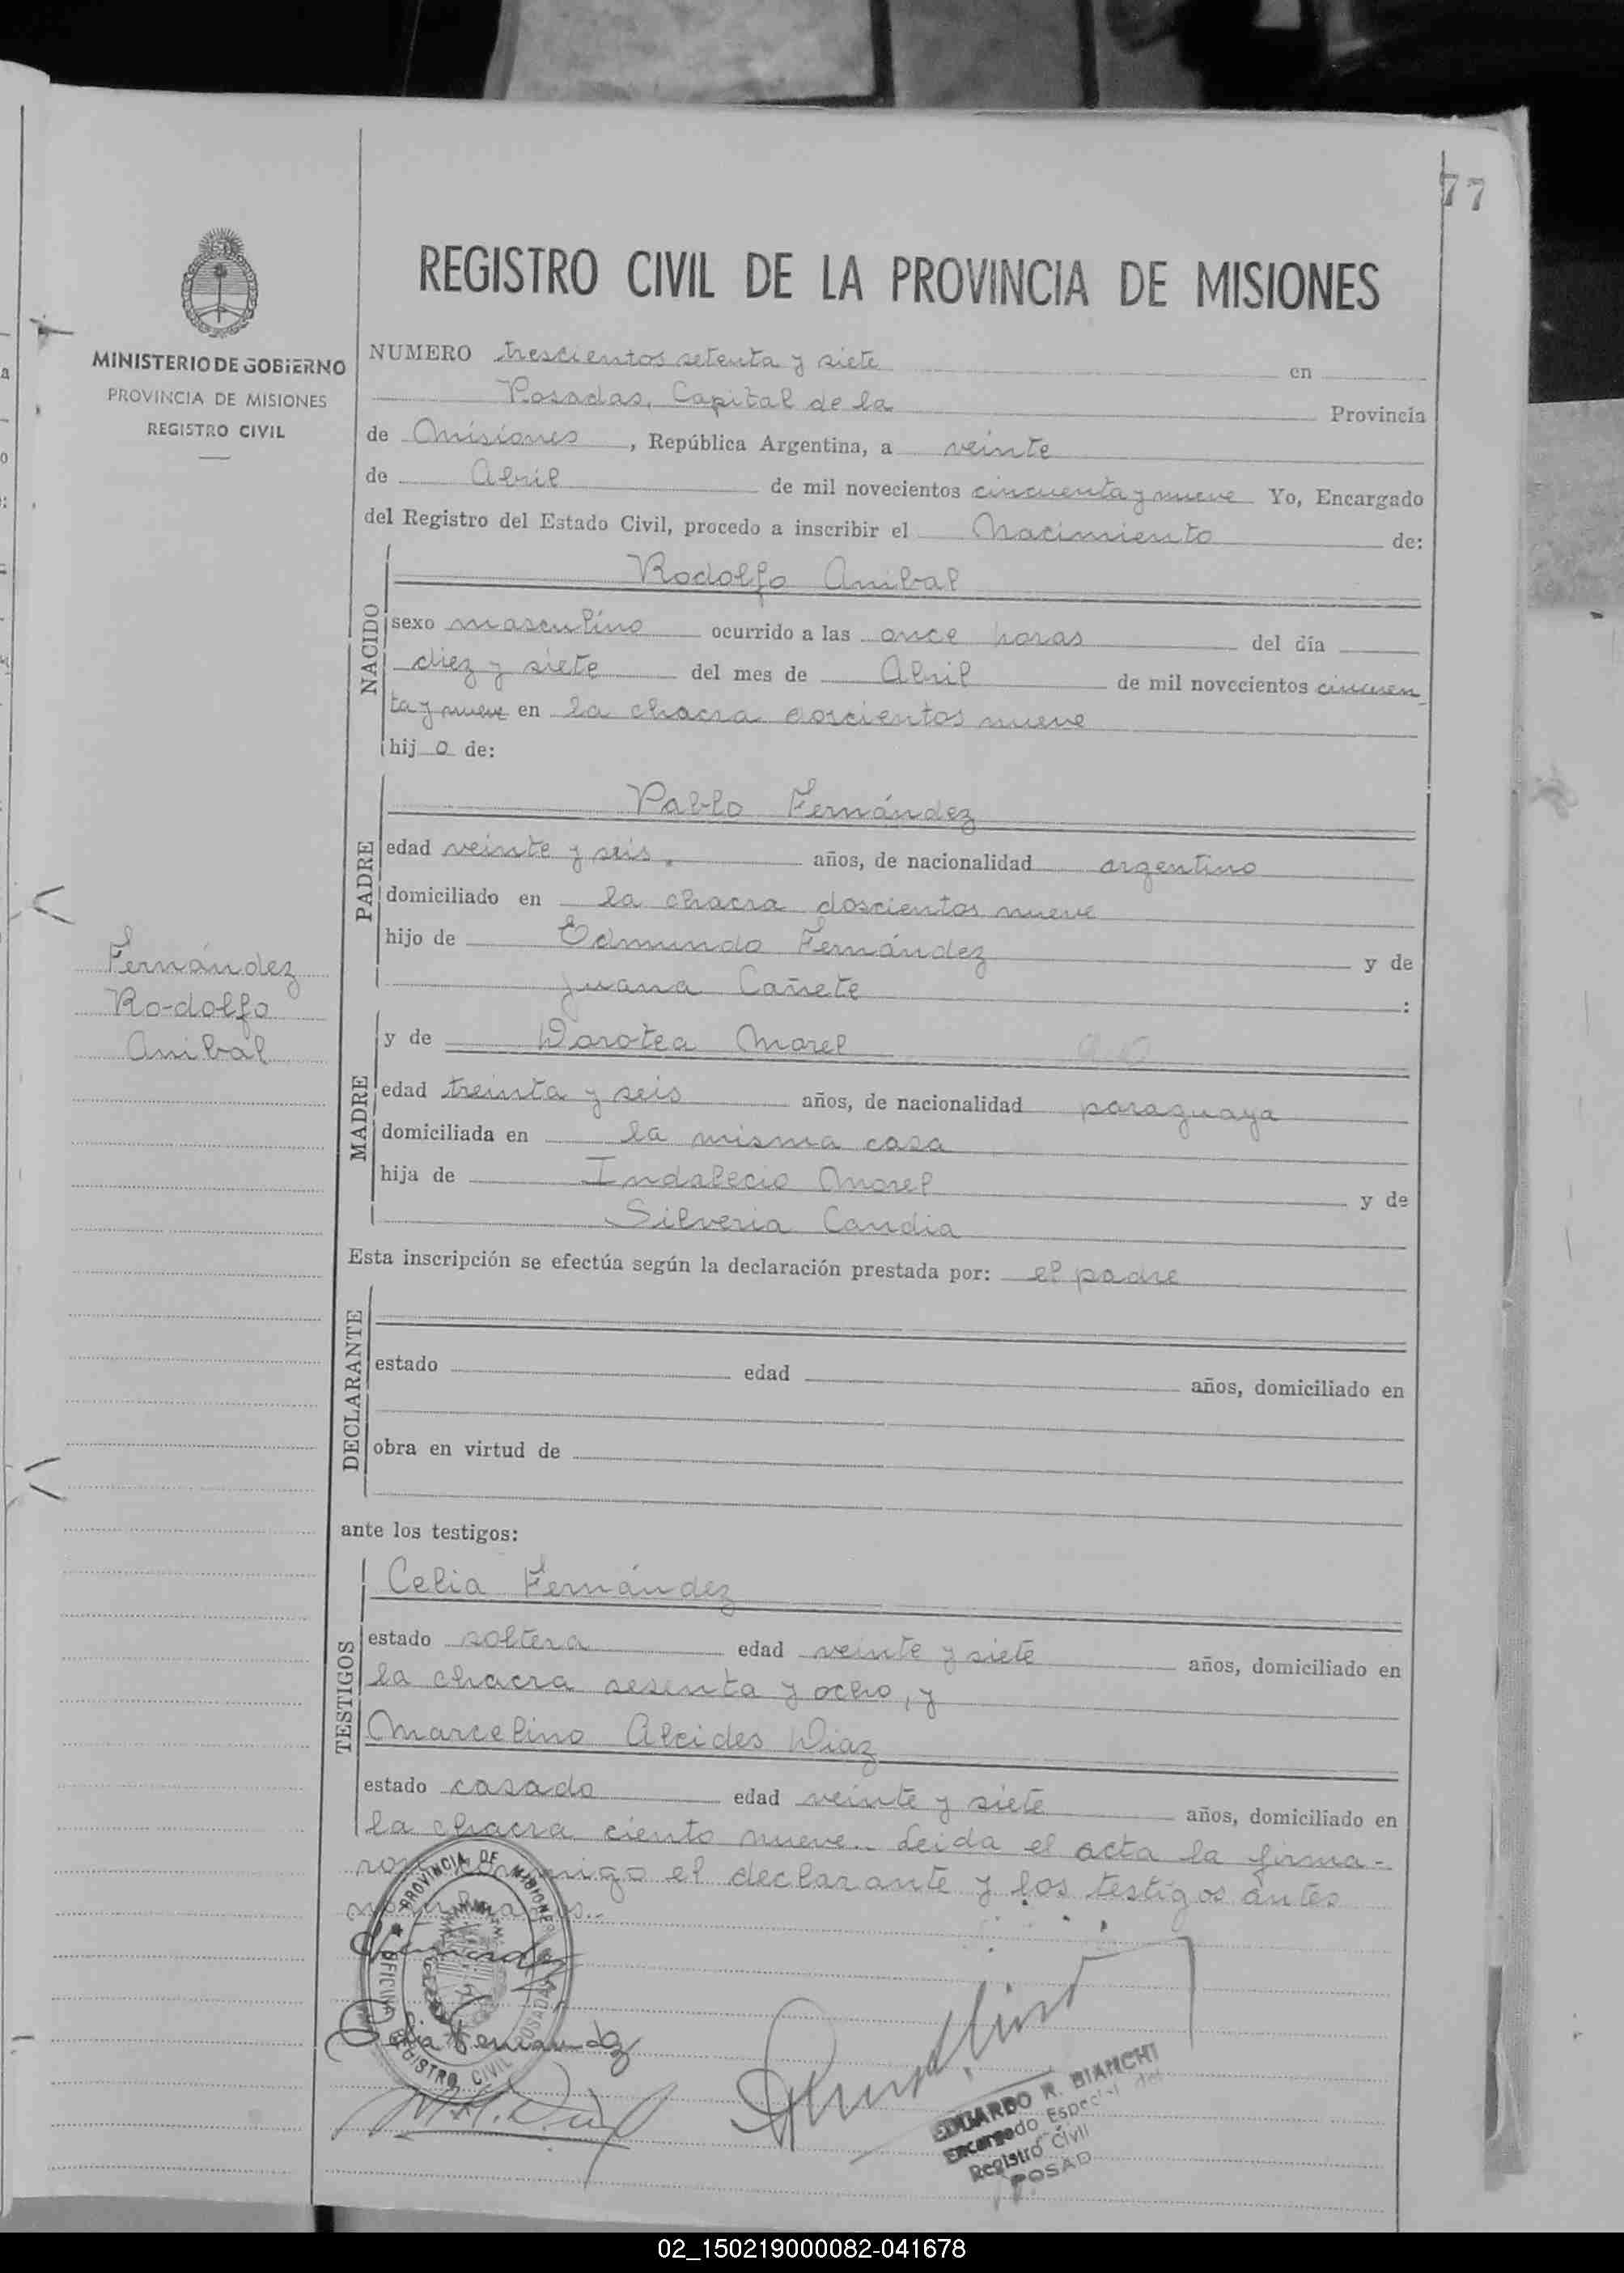 77
REGISTRO CIVIL DE LA PROVINCIA DE MISIONES
MINISTERIO DE GOBIERNO
PROVINCIA DE MISIONES
REGISTRO CIVIL
NUMERO trescientos setenta y siete en
Posadas, Capital de la Provincia
de Misiones, República Argentina, a veinte
de Abril de mil novecientos cincuenta y nueve Yo, Encargado
del Registro del Estado Civil, procedo a inscribir el Nacimiento de:
NACIDO
Rodolfo Anibal
sexo masculino ocurrido a las once horas del día
diez y siete del mes de Abril de mil novecientos cincuen
ta y nueve en la chacra doscientos nueve
hijo de:
PADRE
Pablo Fernández
edad veinte y seis. años, de nacionalidad argentino
domiciliado en la chacra doscientos nueve
hijo de Edmundo Fernández y de
Juana Cañete :
Fernández
Ro-dolfo
Anibal
MADRE
y de Dorotea Morel
edad treinta y seis años, de nacionalidad paraguaya
domiciliada en la misma casa
hija de Indalecio Morel y de
Silveria Candia
Esta inscripción se efectúa según la declaración prestada por: el padre
DECLARANTE
estado edad años, domiciliado en
obra en virtud de
ante los testigos:
TESTIGOS
Celia Fernández
estado soltera edad veinte y siete años, domiciliado en
la chacra sesenta y ocho, y
Marcelino Alcides Diaz
estado casado edad veinte y siete años, domiciliado en
la chacra ciento nueve.. Leida el acta la firma-
ron conmigo el declarante y los testigos antes
nombrados..
PROVINCIA DE MISIONES
OFICINA
REGISTRO CIVIL POSADAS
Fernandez
Celia Fernandez
M.A. Diaz
EDUARDO R. BIANCHI
Encargado Especial del
Registro Civil
POSAD
02_150219000082-041678